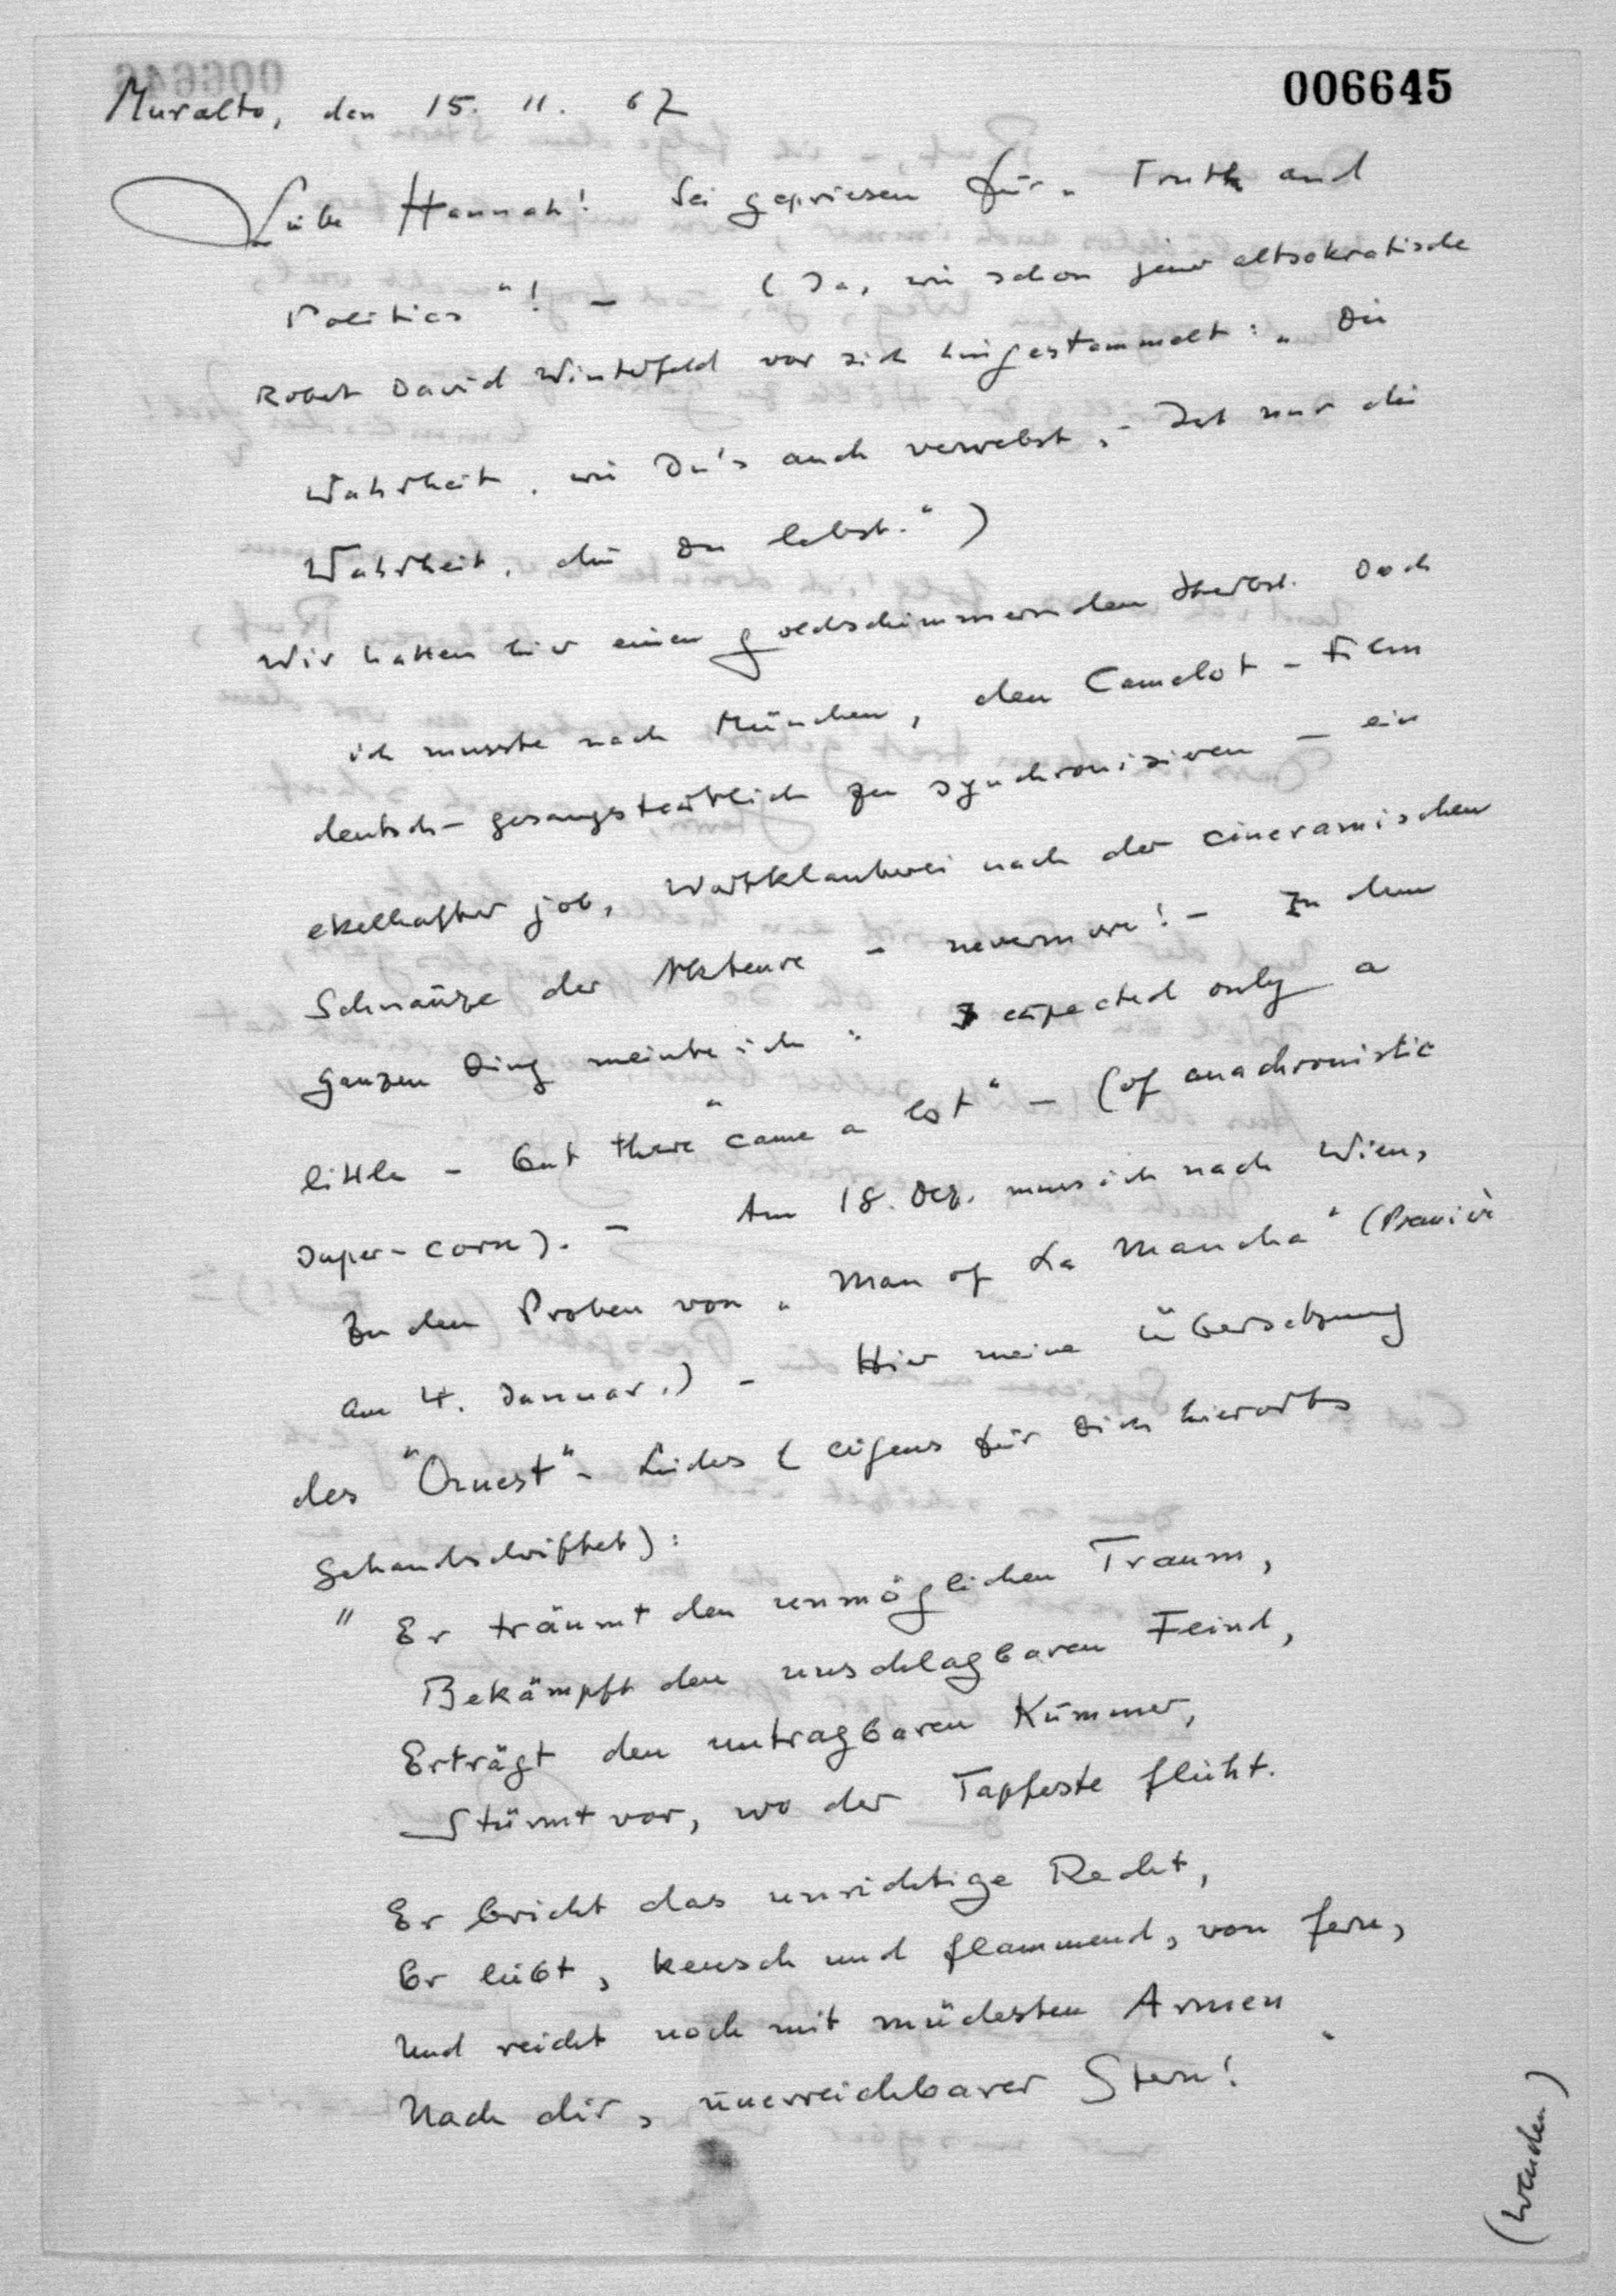 006645
Muralto, den 15. 11. 67
Liebe Hannah! Sei gepriesen für „Truth and
Politics"! – (Ja, wie schon jener altsokratische
Robert David Winterfeld vor sich hingestammelt: „Die
Wahrheit, wie Du's auch verwebst, – Ist nur die
Wahrheit, die Du lebst.")
Wir hatten hier einen goldschimmernden Herbst. Doch
ich musste nach München, den Camelot-Film
deutsch-gesangstextlich zu synchronisieren – ein
ekelhafter job, Wortklauberei nach der cineramischen
Schnauze der Akteure – nevermore! – Zu dem
ganzen Ding meinte ich: I expected only a
little – but there "came a lot" – (of anachronistic
super-corn). – Am 18. Dez. muss ich nach Wien,
zu den Proben von „Man of La Mancha" (Premiere
am 4. Januar.) – Hier meine Übersetzung
des "Quest"-Liedes (eigens für Dich hierorts
gehandschriftet):
" Er träumt den unmöglichen Traum,
Bekämpft den unschlagbaren Feind,
Erträgt den untragbaren Kummer,
Stürmt vor, wo der Tapferste flieht.
Er bricht das unrichtige Recht,
Er liebt, keusch und flammend, von fern,
Und reicht noch mit müdesten Armen
Nach dir, unerreichbarer Stern!
(wenden)